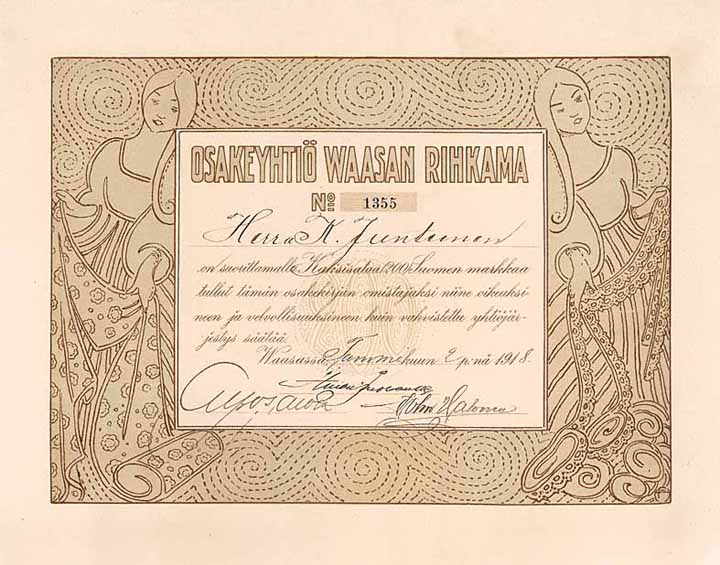 OSAKEYHTIÖ WAASAN RIHKAMA
No 1355
Herra K. Juntunen
on suorittamalla Kaksisataa (200) Suomen markkaa
tullut tämän osakekirjan omistajaksi niine oikeuksi
neen ja velvollisuuksineen kuin vahvistettu yhtiöjär-
jestys säätää.
Waasassa Tammikuun 2 p:nä 1918.
Halonen